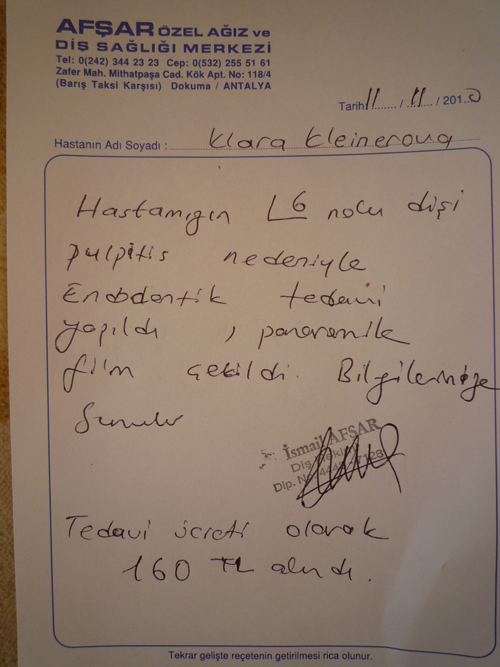 AFŞAR ÖZEL AĞIZ ve
DİŞ SAĞLIĞI MERKEZİ
Tel: 0(242) 344 23 23 Cep: 0(532) 255 51 61
Zafer Mah. Mithatpaşa Cad. Kök Apt. No: 118/4
(Barış Taksi Karşısı) Dokuma / ANTALYA
Tarih 11 / 11 / 2010
Hastanın Adı Soyadı : Klara Kleinerova
Hastamızın 6 nolu dişi
pulpitis nedeniyle
Endodontik tedavi
yapıldı , panoramik
film çekildi. Bilgilerinize
Sunulur
İsmail AFŞAR
Diş Hekimi
Dip. No:
Tedavi ücreti olarak
160 TL alındı.
Tekrar gelişte reçetenin getirilmesi rica olunur.